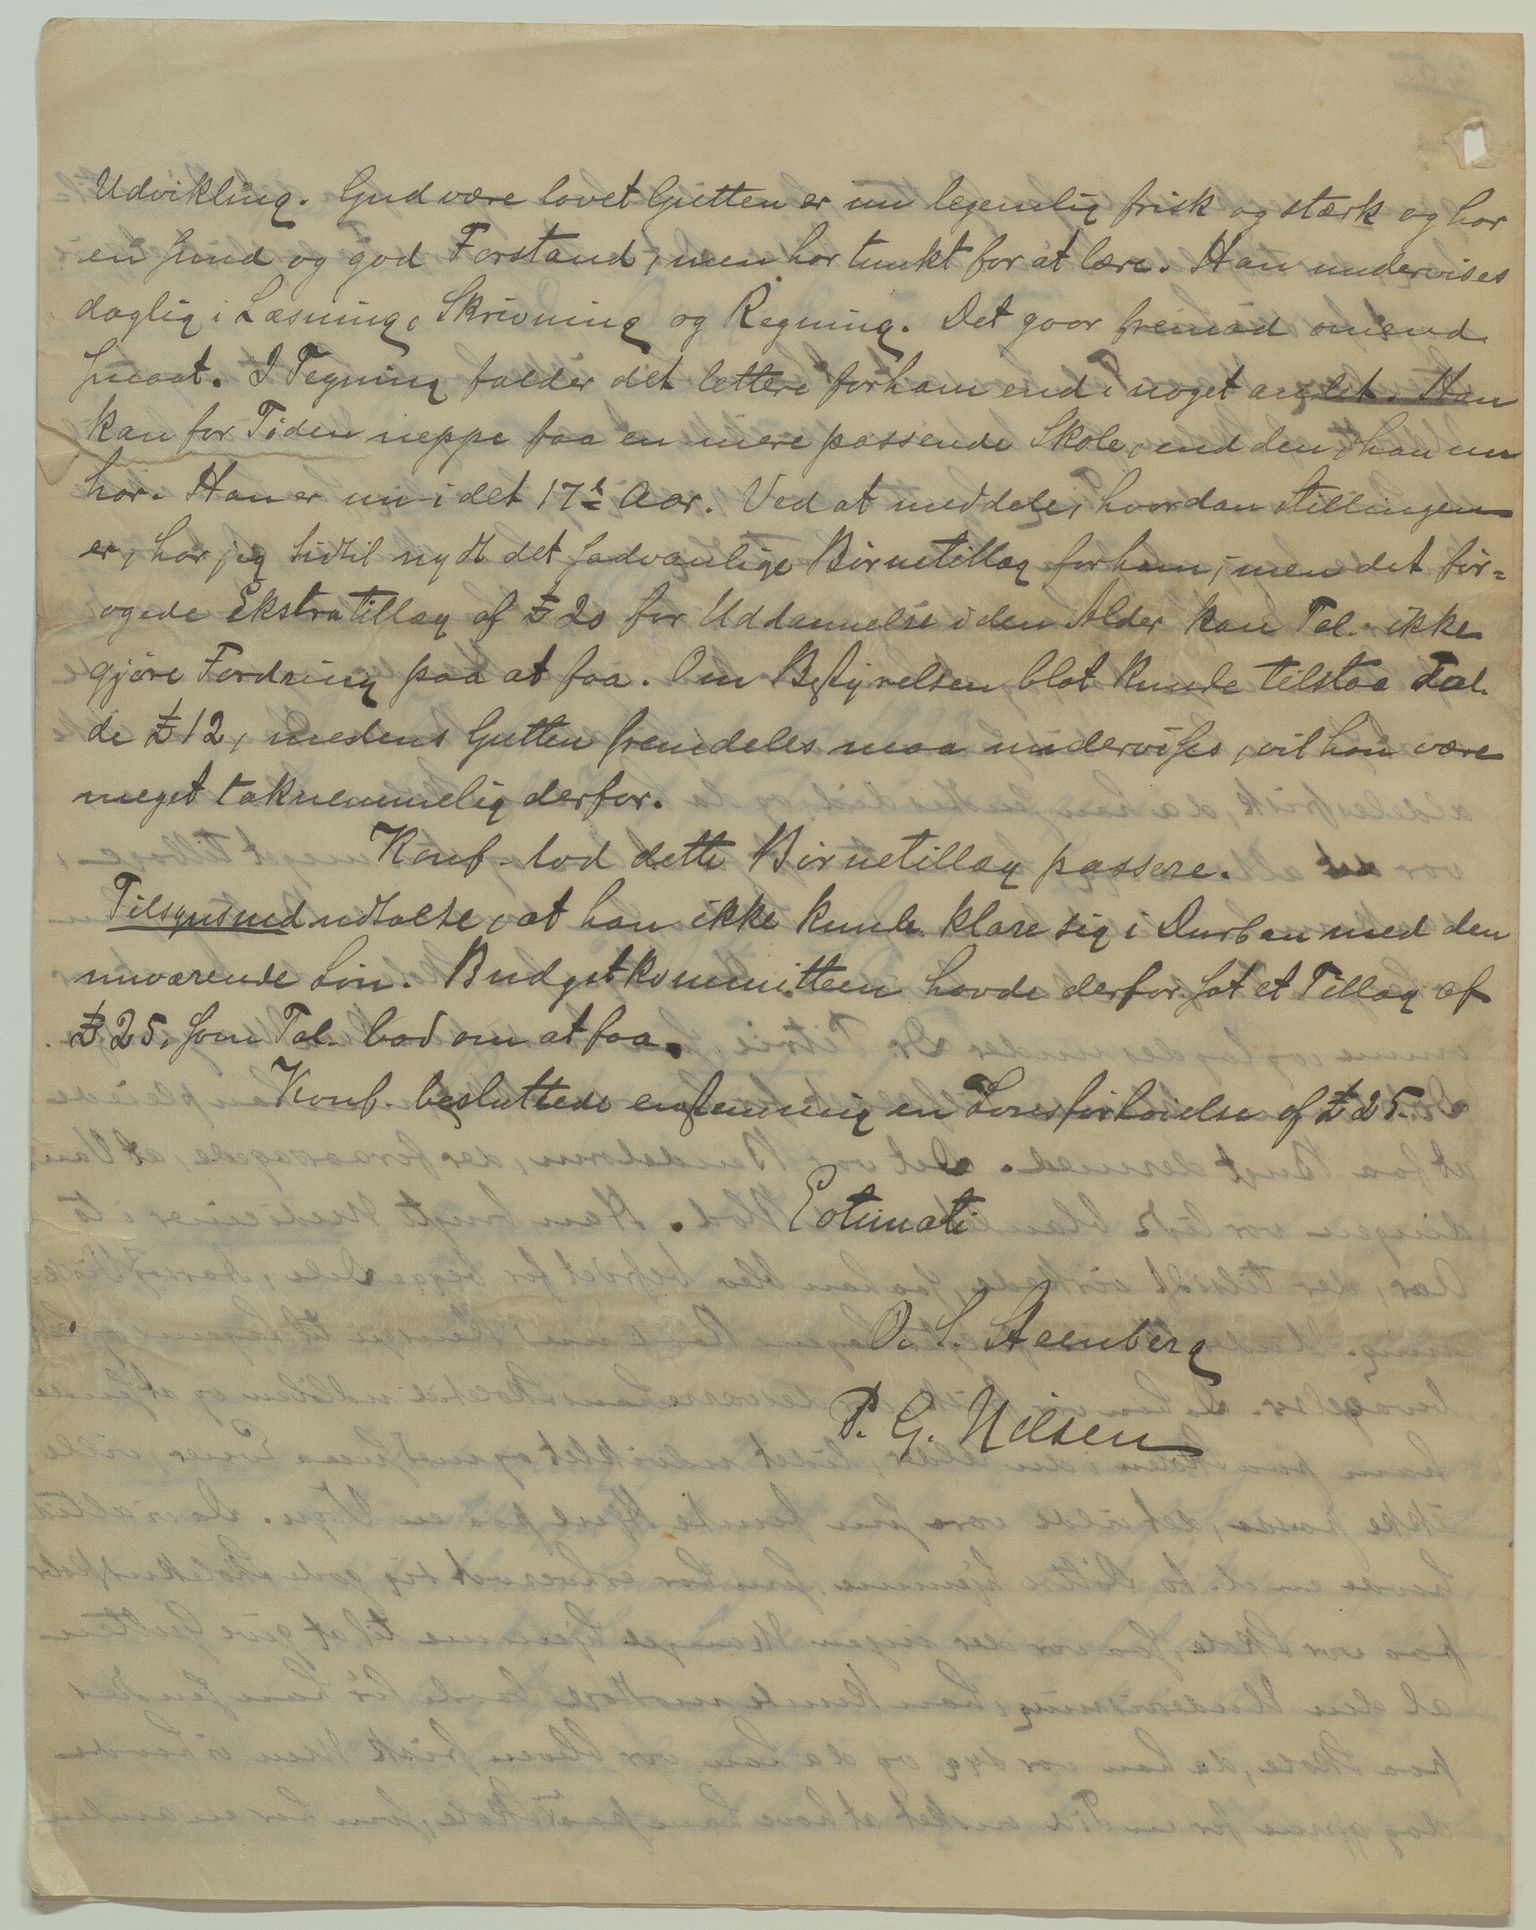 Udvikling. Gud være lovet Gutten er nu legemlig frisk og stærk og har
en sund og god Forstand, men har tunkt for at lære. Han undervises
daglig i Læsning, Skrivning og Regning. Det gaar fremad omend
smaat. I Tegning falder det lettere for ham end i noget andet. Han
kan for Tiden neppe faa en mere passende Skole, end den, han nu
har. Han er nu i det 17de Aar. Ved at meddele, hvordan Stillingen
er, har jeg hidtil nydt det sedvanlige Børnetillæg for ham, men det for=
øgede Ekstratillæg af £20 for Uddannelse i den Alder kan Tal. ikke
gjøre Fordring paa at faa. Om Bestyrelsen blot kunde tilstaa Tal.
de £12, medens Gutten fremdeles maa undervises, vil han være
meget taknemmelig derfor.
Konf. lod dette Børnetillæg passere.
Tilsynsmd udtalte, at han ikke kunde klare sig i Durban med den
nuværende Løn. Budgetkommitteen havde derfor sat et Tillæg af
£25, som Tal. bad om at faa.
Konf. besluttede enstemmig en Lønsforhøielse af £25.
Eotunati
O. S. Steenberg
P. G. Nilsen